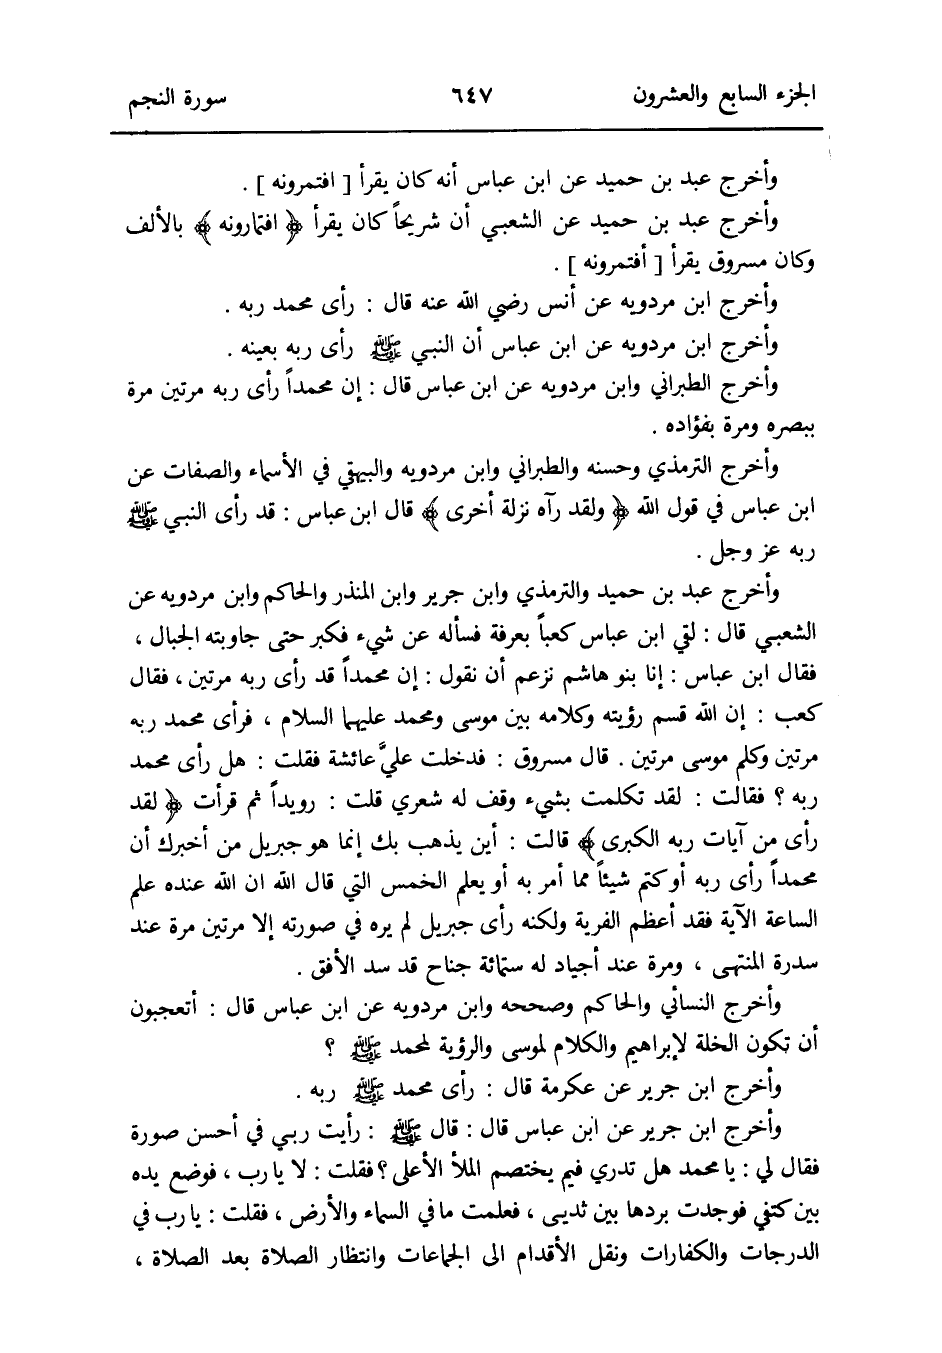 الجزء السابع والعشرون ٦٤٧ سورة النجم
وأخرج عبد بن حميد عن ابن عباس أنه كان يقرأ [ افتمرونه ] .
وأخرج عبد بن حميد عن الشعبي أن شريحاً كان يقرأ ﴿ افتمارونه ﴾ بالألف
وكان مسروق يقرأ [ أفتمرونه ] .
وأخرج ابن مردويه عن أنس رضي الله عنه قال : رأى محمد ربه .
وأخرج ابن مردويه عن ابن عباس أن النبي ﷺ رأى ربه بعينه .
وأخرج الطبراني وابن مردويه عن ابن عباس قال : إن محمداً رأى ربه مرتين مرة
ببصره ومرة بفؤاده .
وأخرج الترمذي وحسنه والطبراني وابن مردويه والبيهقي في الأسماء والصفات عن
ابن عباس في قول الله ﴿ ولقد رآه نزلة أخرى ﴾ قال ابن عباس : قد رأى النبي ﷺ
ربه عز وجل .
وأخرج عبد بن حميد والترمذي وابن جرير وابن المنذر والحاكم وابن مردويه عن
الشعبي قال : لقي ابن عباس كعباً بعرفة فسأله عن شيء فكبر حتى جاوبته الجبال ،
فقال ابن عباس : إنا بنو هاشم نزعم أن نقول : إن محمداً قد رأى ربه مرتين ، فقال
كعب : إن الله قسم رؤيته وكلامه بين موسى ومحمد عليهما السلام ، فرأى محمد ربه
مرتين وكلم موسى مرتين . قال مسروق : فدخلت عليَّ عائشة فقلت : هل رأى محمد
ربه ؟ فقالت : لقد تكلمت بشيء وقف له شعري قلت : رويداً ثم قرأت ﴿ لقد
رأى من آيات ربه الكبرى ﴾ قالت : أين يذهب بك إنما هو جبريل من أخبرك أن
محمداً رأى ربه أو كتم شيئاً مما أمر به أو يعلم الخمس التي قال الله ان الله عنده علم
الساعة الآية فقد أعظم الفرية ولكنه رأى جبريل لم يره في صورته إلا مرتين مرة عند
سدرة المنتهى ، ومرة عند أجياد له ستمائة جناح قد سد الأفق .
وأخرج النسائي والحاكم وصححه وابن مردويه عن ابن عباس قال : أتعجبون
أن تكون الخلة لإبراهيم والكلام لموسى والرؤية لمحمد ﷺ ؟
وأخرج ابن جرير عن عكرمة قال : رأى محمد ﷺ ربه .
وأخرج ابن جرير عن ابن عباس قال : قال ﷺ : رأيت ربي في أحسن صورة
فقال لي : يا محمد هل تدري فيم يختصم الملأ الأعلى ؟ فقلت : لا يا رب ، فوضع يده
بين كتفي فوجدت بردها بين ثديي ، فعلمت ما في السماء والأرض ، فقلت : يا رب في
الدرجات والكفارات ونقل الأقدام الى الجماعات وانتظار الصلاة بعد الصلاة ،